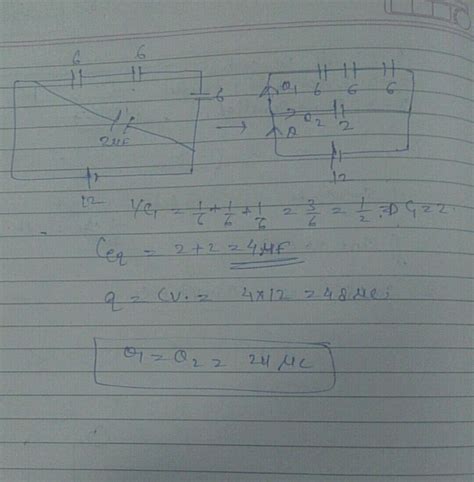 6 6
6
2μF
12
Q1 6 6 6
Q2 2
Q
12
1/C1 = 1/6 + 1/6 + 1/6 = 3/6 = 1/2 ⇒ C1 = 2
Ceq = 2 + 2 = 4μF
q = CV. = 4x12 = 48μC
Q1 = Q2 = 24μC